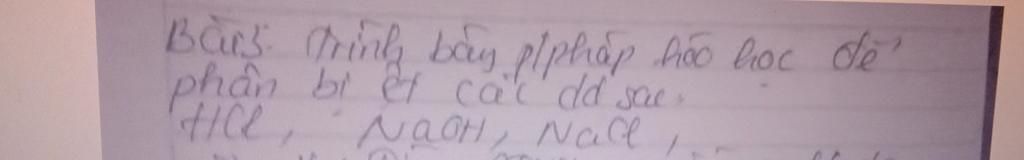 Bài 5. Trình bày p/pháp hóa học để
phân bi ệt các dd sau.
HCl, NaOH, NaCl,